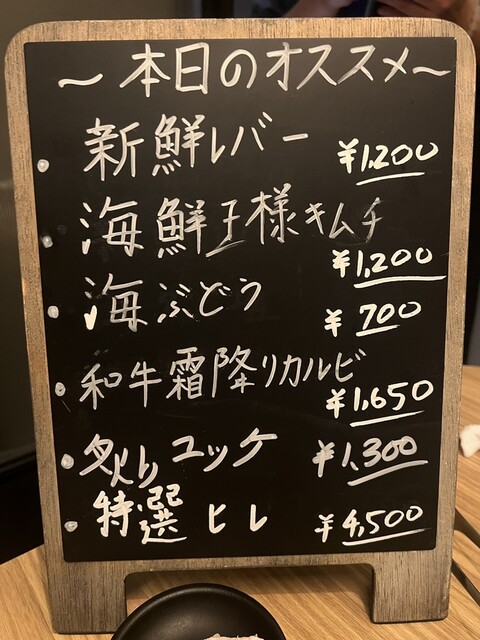 ～本日のオススメ～
・新鮮レバー ¥1,200
・海鮮王様キムチ ¥1,200
・海ぶどう ¥700
・和牛霜降りカルビ ¥1,650
・炙りユッケ ¥1,300
・特選ヒレ ¥4,500